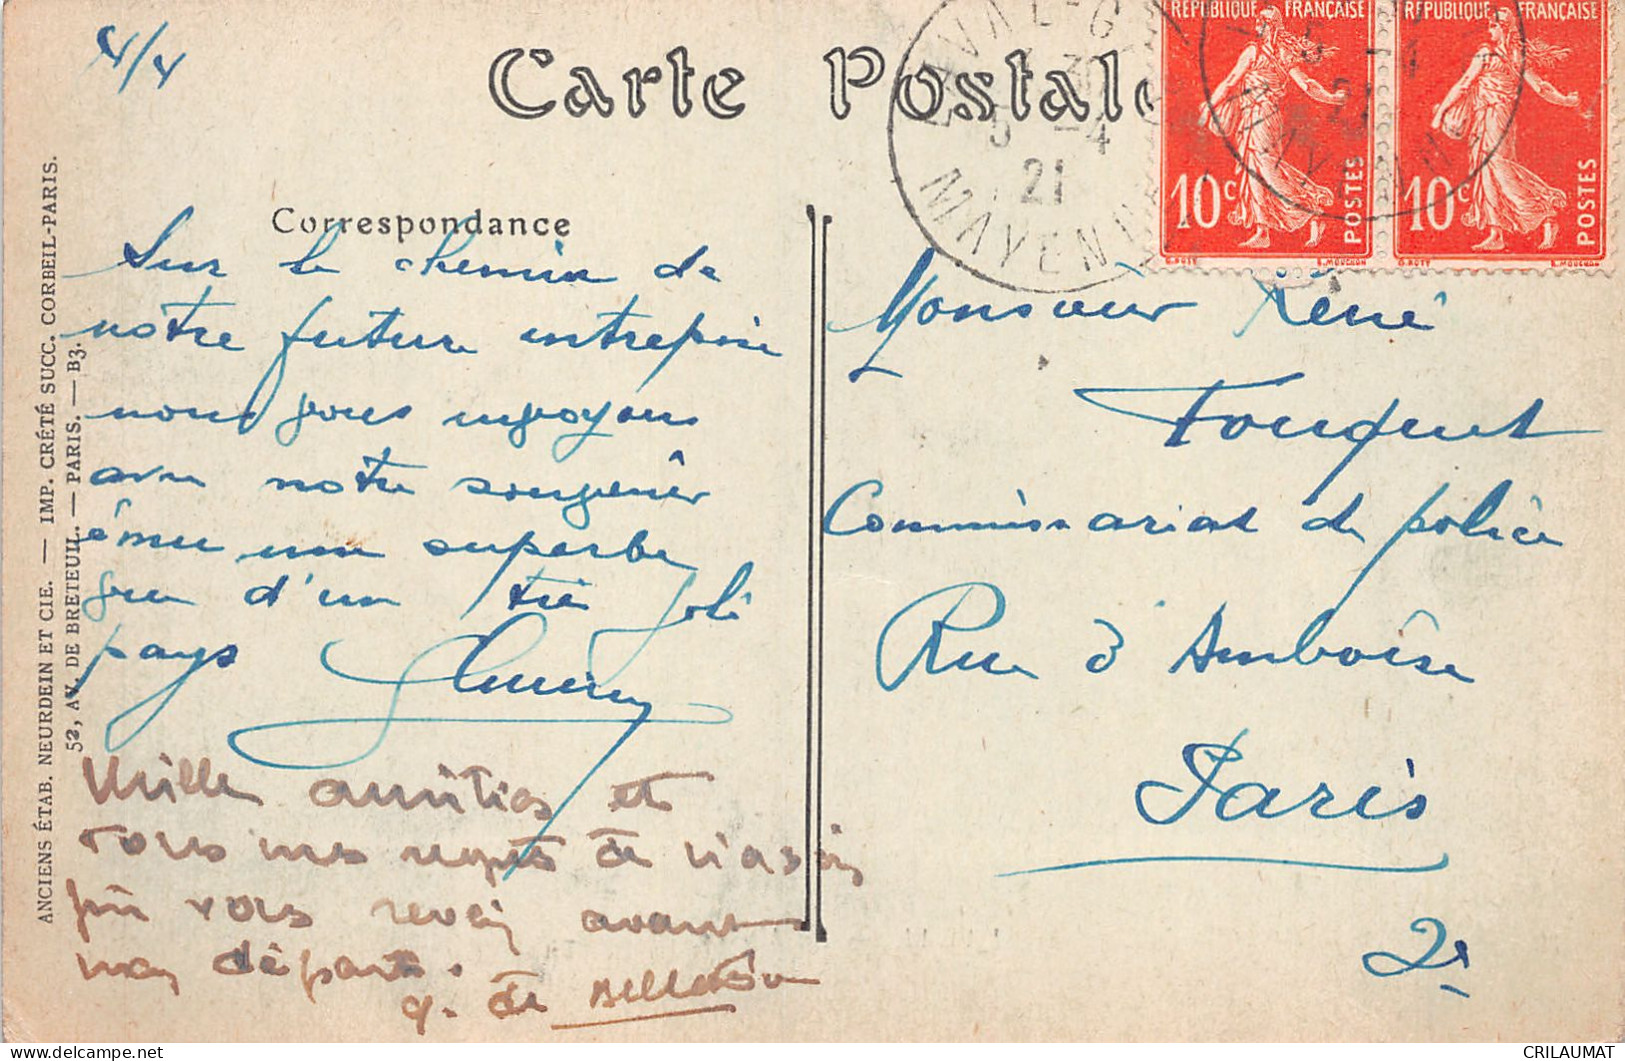 4/4
Carte Postale
Correspondance
Sur le chemin de
notre future entreprise
nous vous envoyons
avec notre souvenir
ému une superbe
vue d'un très joli
pays
Mille amitiés et
tous mes regrets de n'avoir
pu vous revoir avant
mon départ.
g. de
LAVAL-G
5 -4
21
MAYENNE
5 -4
21
MAYENNE
REPUBLIQUE FRANÇAISE
10c
POSTES
REPUBLIQUE FRANÇAISE
10c
POSTES
Monsieur René
Fouquet
Commissariat de police
Rue d'Amboise
Paris
2e
ANCIENS ÉTAB. NEURDEIN ET CIE. — IMP. CRÉTÉ SUCC. CORBEIL-PARIS.
52, AV. DE BRETEUIL. — PARIS. — B3.
CRILAUMAT